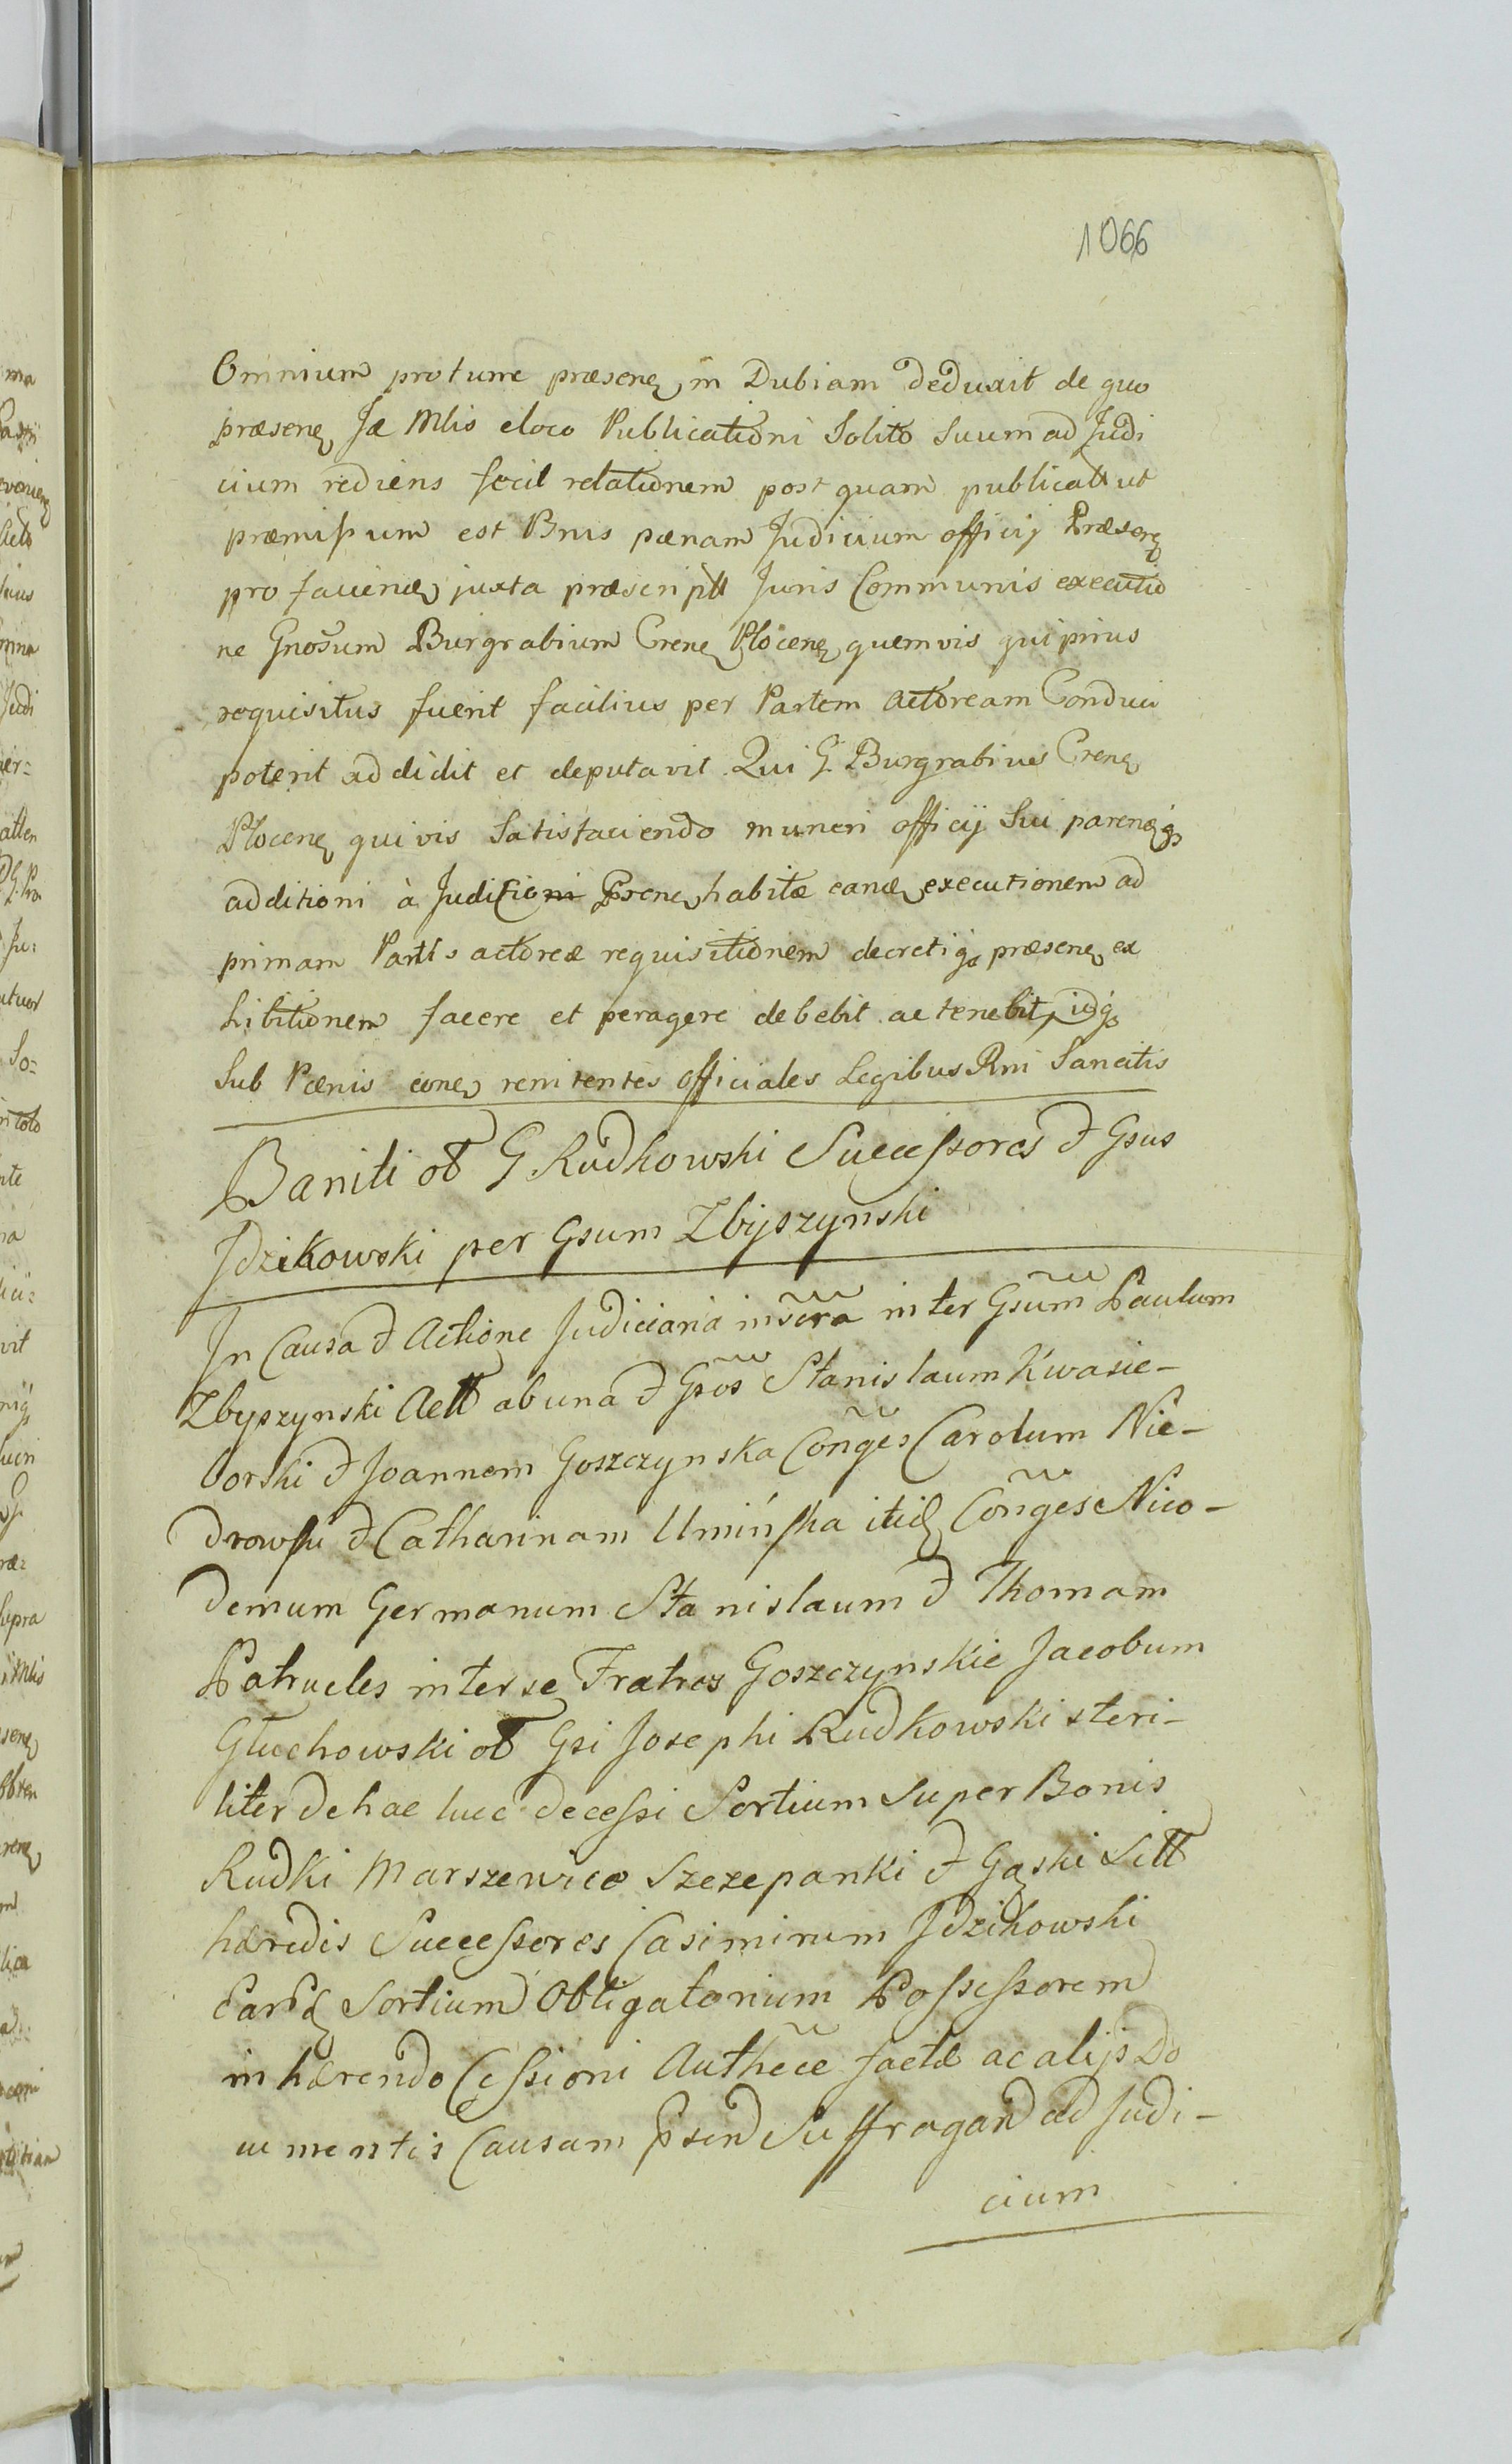 1066
Omnium protunc præsenꝫ in Dubiam deduxit de quo
præsenꝫ Jæ Mlis eloco Publicationi Solito Suum ad Judi
cium rediens fecit relationem post quam publicatt ut
præmissum est Bnis pænam Judicium officij Præsenꝫ
pro faciendꝫ juxta præscriptt Juris Communis executio
ne Gnosum Burgrabium Crenꝫ Płocenꝫ quemvis qui prius
requisitus fuerit facilius per Partem Actoream Conduci
poterit addidit et deputavit Qui G. Burgrabius Crenꝫ
Płocenꝫ quivis Satisfaciendo muneri officij Sui parendꝫ qꝫ
additioni à Judicio Præsenꝫ habitæ eandꝫ executionem ad
primam Partis actoreæ requisitionem decretiqꝫ præsenꝫ ex
hibitionem facere et peragere debebit ac tenebit, idqꝫ
Sub Pænis conꝫ renitentes officiales Legibus Rni Sancitis
Baniti ob G Rudkowski Successores & Gsus
Jdzikowski per Gsum Zbyszynski
In Causa & Actione Judiciaria infra inter Gsum Paulum
Zbyszynski Actt ab una & Gsos Stanislaum Kwasie-
borski & Joannem Goszczynska Conges Carolum Nie-
drowski & Catharinam Umińska itidꝫ Conges Nico-
demum Germanum Stanislaum & Thomam
Patrueles inter se Fratres Goszczynskie Jacobum
Głuchowski ob Gsi Josephi Rudkowski steri-
liter de hac luce decessi Sortium Super Bonis
Rudki Marszewice Szczepanki & Gąski Sitt
hæredis Successores Casimirum Jdzikowski
Earūdꝫ Sortium Obligatorium Possessorem
in hærendo Cessioni Authcæ factæ ac alijs Do
cumentis Causam Psend Suffragand ad Judi-
cium